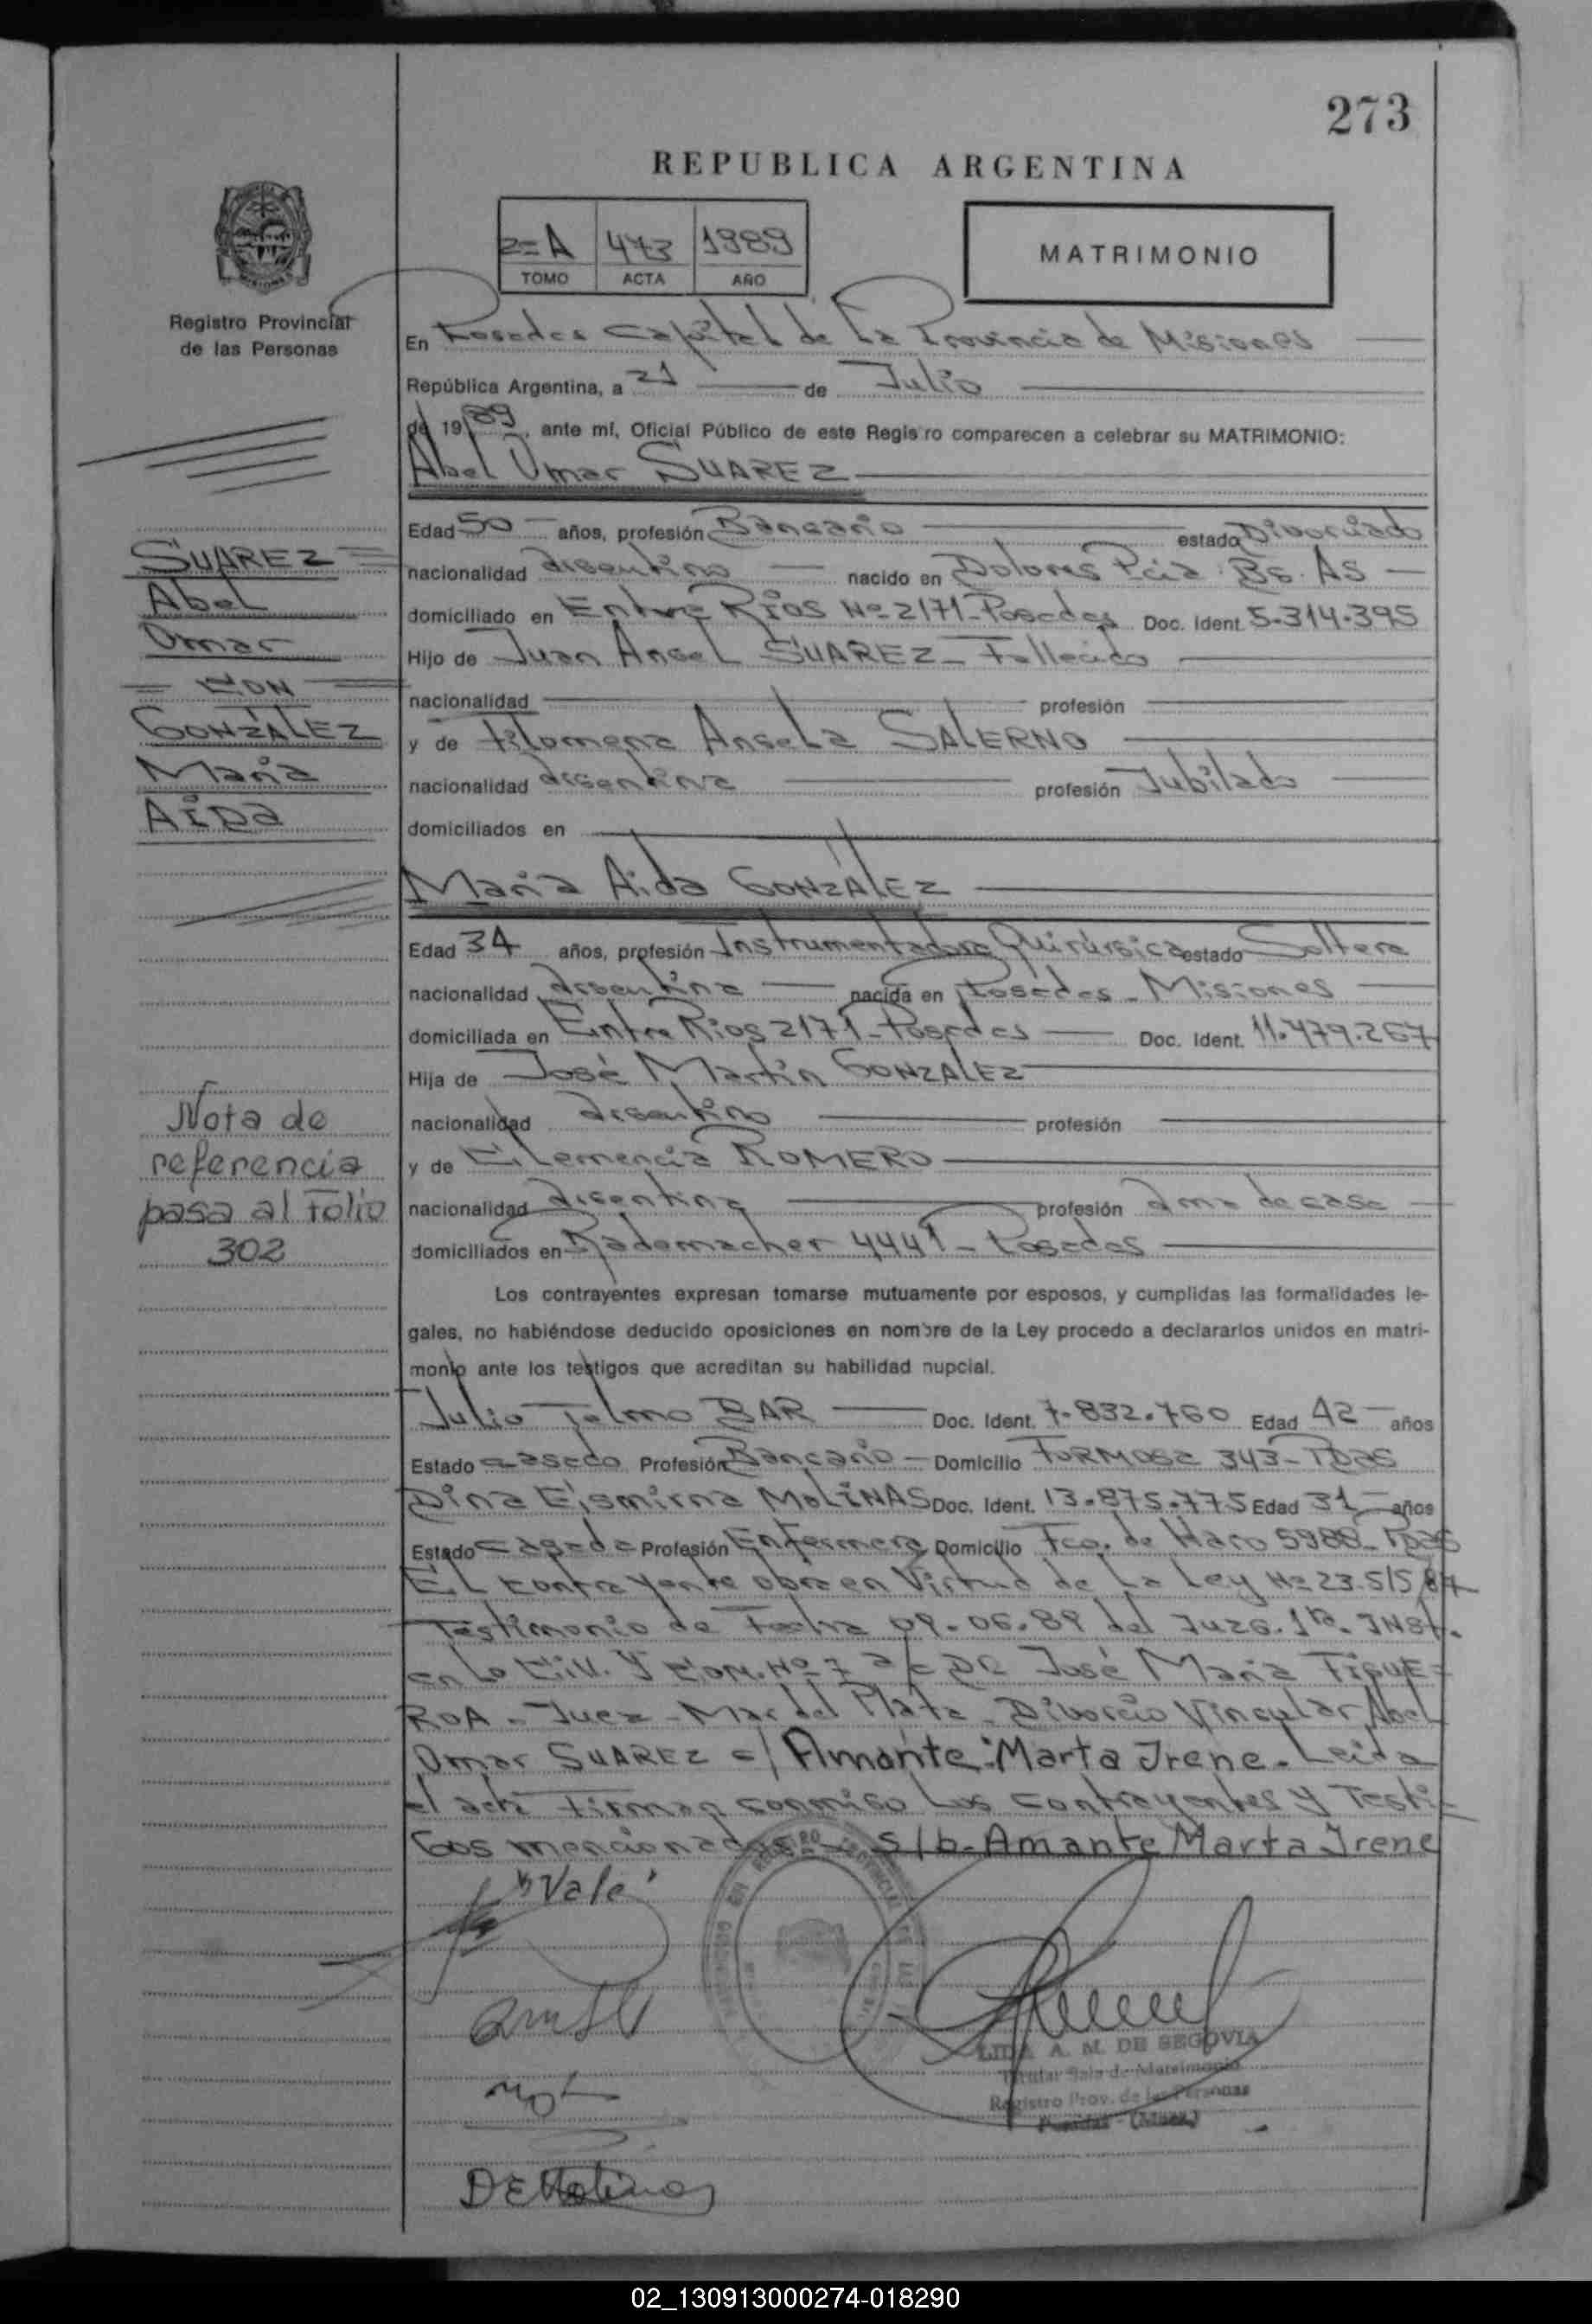 273
REPUBLICA ARGENTINA
2=A 473 1989
TOMO ACTA AÑO
MATRIMONIO
Registro Provincial
de las Personas
En Posadas Capital de La Provincia de Misiones
República Argentina, a 21 de Julio
de 1989, ante mí, Oficial Público de este Regis ro comparecen a celebrar su MATRIMONIO:
Abel Omar SUAREZ
Edad 50 años, profesión Bancario estado Divorciado
nacionalidad argentino nacido en Dolores Pcia. Bs. As
domiciliado en Entre Ríos Nº 2171-Posadas Doc. Ident. 5.314.395
Hijo de Juan Angel SUAREZ - Fallecido
nacionalidad profesión
y de Filomena Angela SALERNO
nacionalidad argentina profesión Jubilada
domiciliados en
SUAREZ
Abel
Omar
= CON =
GONZÁLEZ
María
AIDA
María Aida GONZÁLEZ
Edad 34 años, profesión Instrumentadora Quirúrgica estado Soltera
nacionalidad argentina nacida en Posadas - Misiones
domiciliada en Entre Ríos 2171-Posadas Doc. Ident. 11.479.267
Hija de José Martín GONZALEZ
nacionalidad argentino profesión
y de Clemencia ROMERO
nacionalidad argentina profesión ama de casa
domiciliados en Rademacher 4441 - Posadas
Nota de
referencia
pasa al Folio
302
Los contrayentes expresan tomarse mutuamente por esposos, y cumplidas las formalidades le-
gales, no habiéndose deducido oposiciones en nombre de la Ley procedo a declararlos unidos en matri-
monio ante los testigos que acreditan su habilidad nupcial.
Julio Telmo BAR Doc. Ident. 7.832.760 Edad 42 años
Estado casado Profesión Bancario Domicilio FORMOSA 343-Pdas
Dina MOLINAS Doc. Ident. 13.875.775 Edad 31 años
Estado casada Profesión Enfermera Domicilio Fco. de Haro 5988-Pdas
El contrayente obra en Virtud de La Ley Nº 23.515/87
Testimonio de Fecha 09.06.89 del Juzg. 1ra. Inst.
en lo Civ. y Com. Nº 7 a/c DR José María FIGUE=
ROA - Juez - Mar del Plata - Divorcio Vincular Abel
Omar SUAREZ c/ Amante: Marta Irene. Leída
el acta Firman conmigo los contrayentes y Testi=
gos mencionados.- S/b-Amante Marta Irene
"Vale"
LIDA A. M. DE SEGOVIA
Titular Sala de Matrimonio
Registro Prov. de las Personas
Posadas - (Mnes.)
DEMolinas
02_130913000274-018290